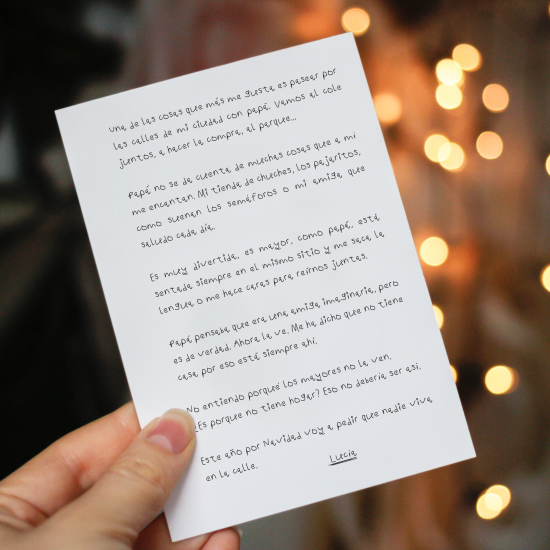 Una de las cosas que más me gusta es pasear por
las calles de mi ciudad con papá. Vamos al cole
juntos, a hacer la compra, al parque...
Papá no se da cuenta de muchas cosas que a mi
me encantan. Mi tienda de chuches, los pajaritos,
como suenan los semáforos o mi amiga que
saludo cada día.
Es muy divertida, es mayor, como papá, está
sentada siempre en el mismo sitio y me saca la
lengua o me hace caras para reírnos juntas.
Papá pensaba que era una amiga imaginaria, pero
es de verdad. Ahora la ve. Me ha dicho que no tiene
casa por eso está siempre ahí.
No entiendo porqué los mayores no la ven.
¿Es porque no tiene hogar? Eso no debería ser asi.
Este año por Navidad voy a pedir que nadie viva
en la calle.
Lucía